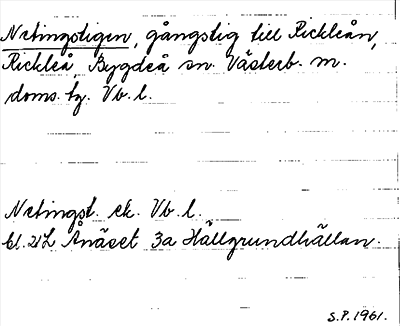 Natingstigen, gångstig till Rickleån,
Rickleå Bygdeå sn. Västerb. m.
doms. tg. Vb. l.
Natingst. ek. Vb. l.
bl. 21L Ånäset 3a Hällgrundhällan.
S.P. 1961.